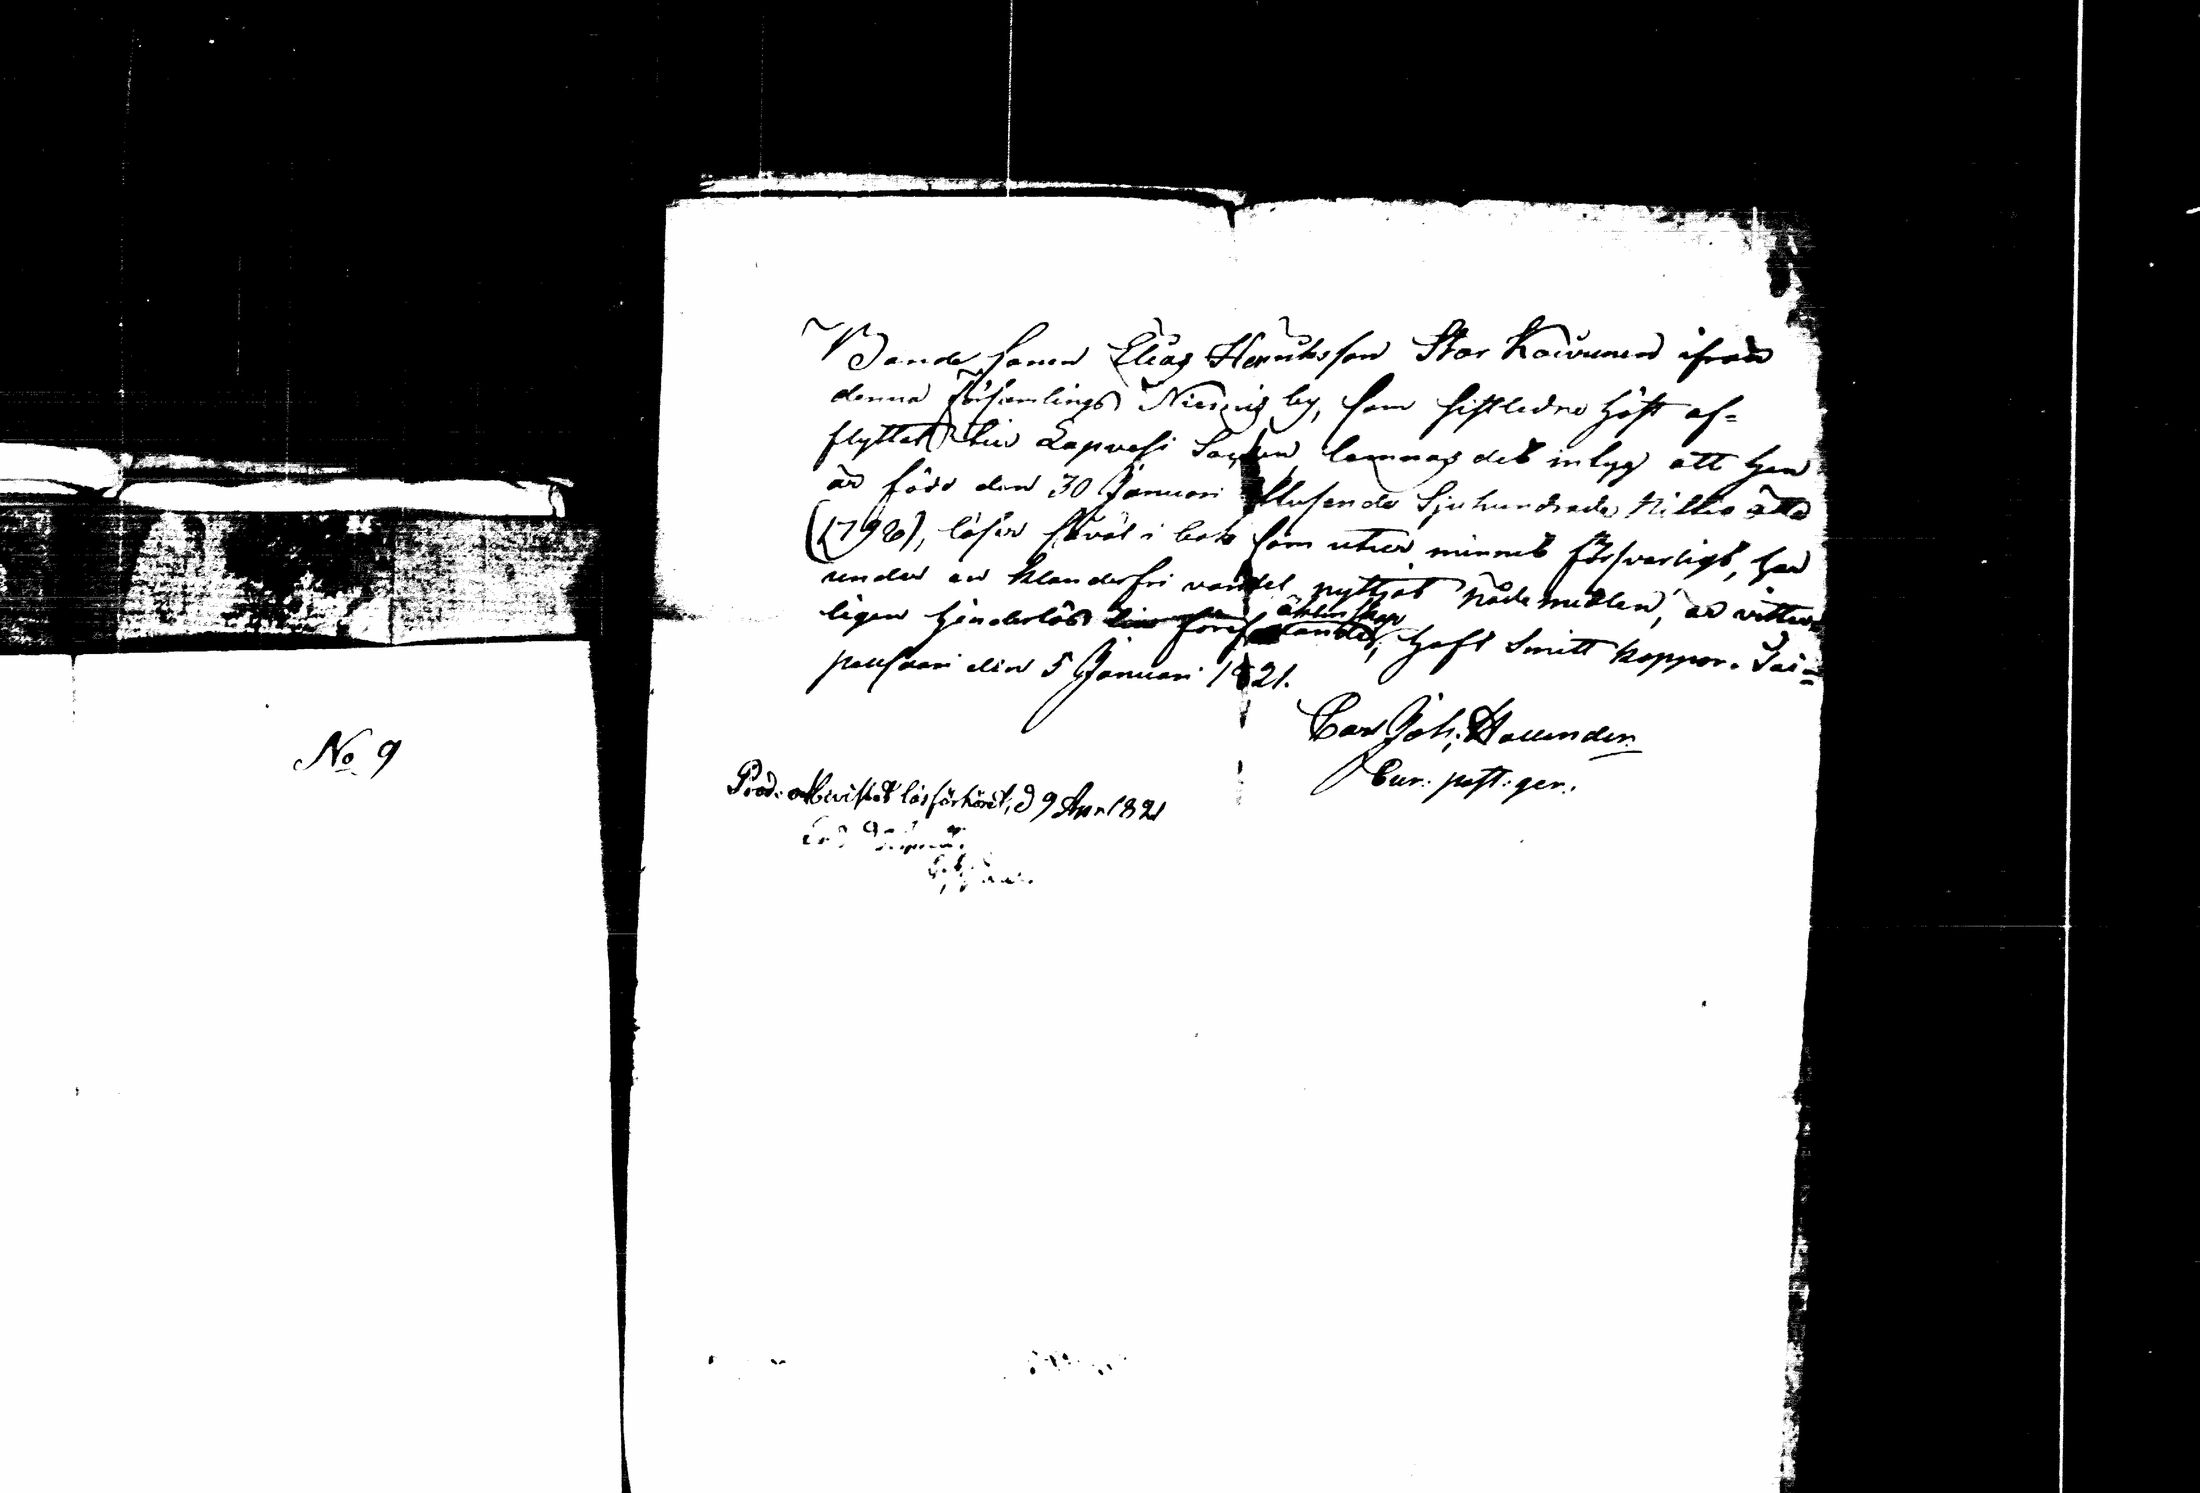 No 9
Bonde sonen Elias Henriksson Stor Kaivunen ifrån
denna församlings Niemis by, som sistledne höst af=
flyttat till Lapvesi Socken lemnas det intyg att han
är född den 30 Januari Ettusende Sjuhundrade Nittio åtta
(1798), läser såväl i bok som utur minnet försvarligt, har
under en klanderfri vandel nyttjat nådemedlen, är vitter=
ligen hinderlös till äktenskap, haft Smitt koppor. Tai=
palsaari den 5 Januari 1821.
Carl Joh: Hallender
Cur. past: ger.
Prod. och bevistat läsförhöret, d 9 Apr. 1821